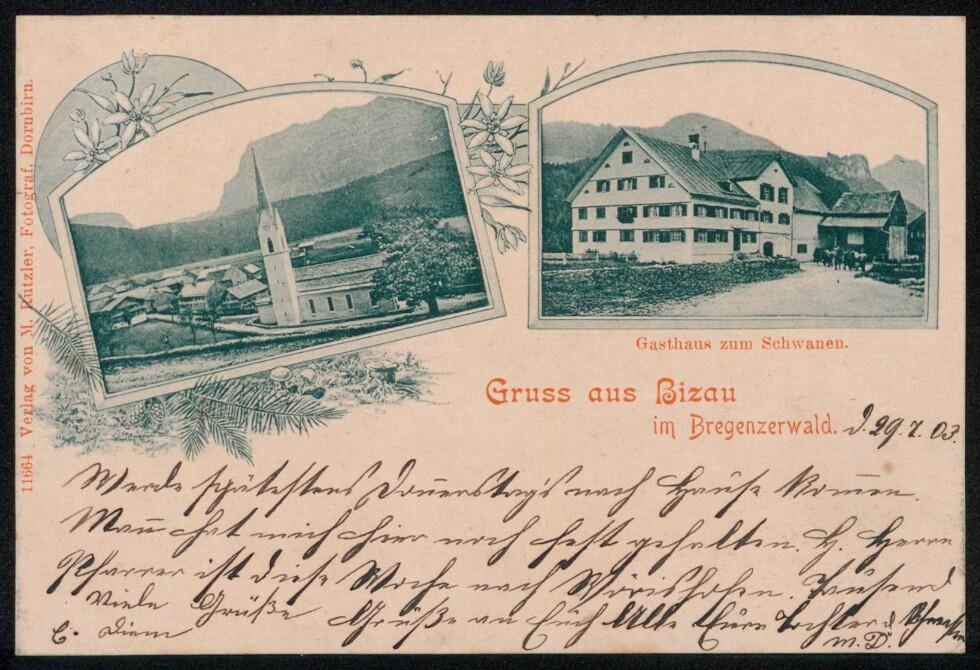 11664 Verlag von M. Rützler, Fotograf, Dornbirn.
Gasthaus zum Schwanen.
Gruss aus Bizau
im Bregenzerwald.
d. 29.7.03.
Werde spätestens Donnerstags nach Hause kommen.
Man hat mich hier noch fest gehalten. H. Herrn
Pfarrer ist diese Woche nach Wörishofen. Tausend
Grüße an Euch Alle Eure Tochter u. Schwester
m. D.
Viele Grüße
C. Diem